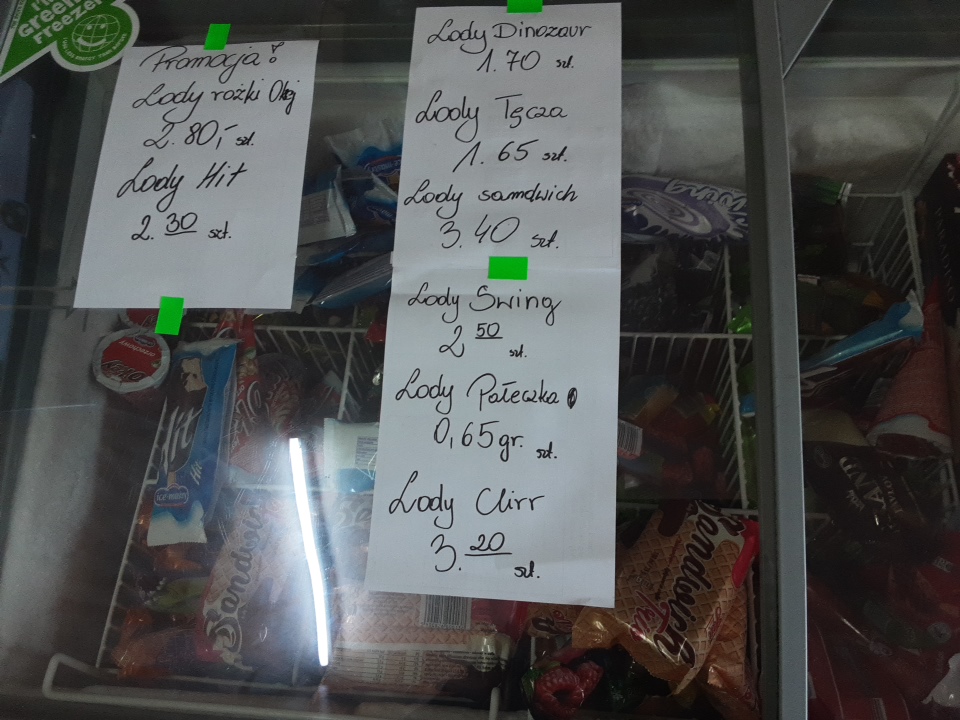 Green
Freezer
Promocja!
Lody rożki Okej
2.80,- szt.
Lody Hit
2.30 szt.
Lody Dinozaur
1.70 szt.
Lody Tęcza
1.65 szt.
Lody samdwich
3.40 szt.
Lody Swing
2 50 szt.
Lody Pałeczka
0,65gr. szt.
Lody Clirr
3.20 szt.
Hit
Hit
Sandwich
Sandwich